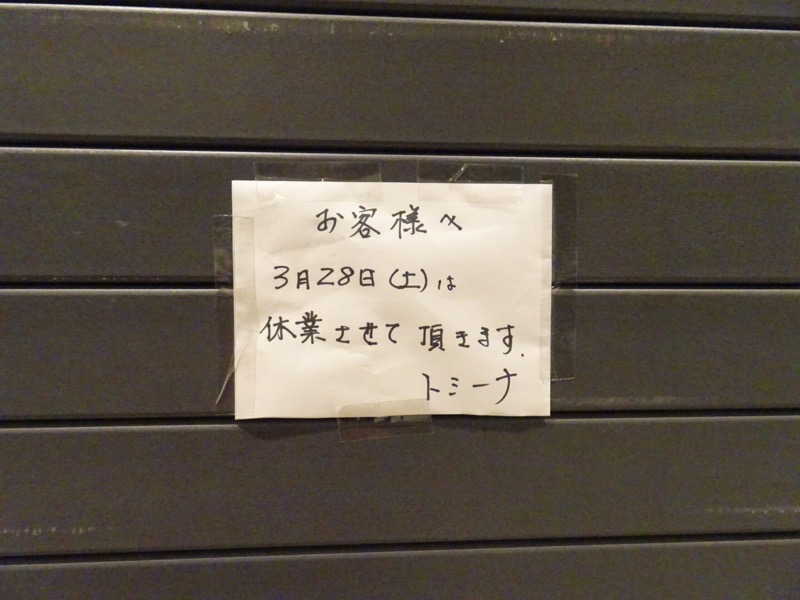 お客様へ
3月28日(土)は
休業させて頂きます.
トミーナ